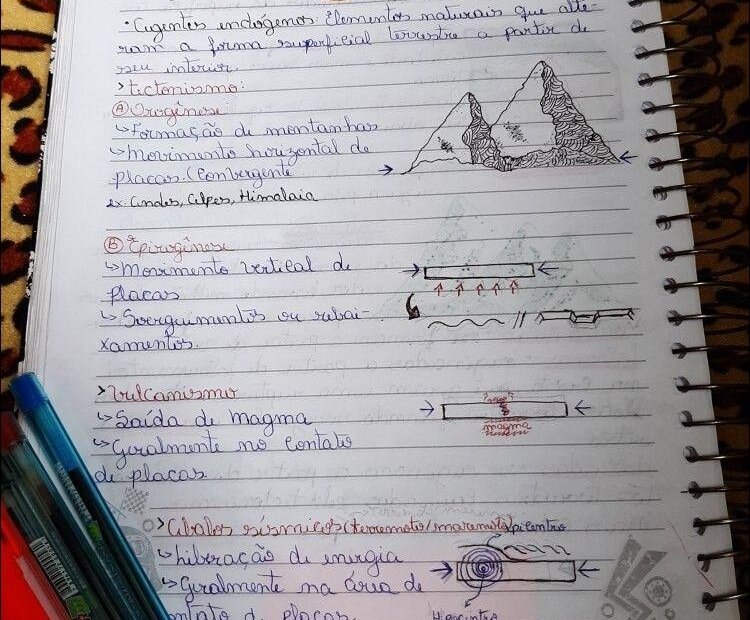 • Agentes endógenos: Elementos naturais que alte-
ram a forma superficial terrestre a partir de
seu interior.
> tictonismo:
Ⓐ Orogênese
↳ Formação de montanhas
↳ movimento horizontal de
placas. (Convergente
ex Andes, Alpes, Himalaia
Ⓑ Epirogênese
↳ movimento vertical de
placas
↳ Soerguimentos ou rebai-
xamentos.
> Vulcanismo
↳ Saída de magma
↳ Geralmente no contato
de placas
magma
> Abalos sísmicos (terremoto/maremoto)
epicentro
↳ liberação de energia
↳ Geralmente na área de
contato d placas
Hipocentro